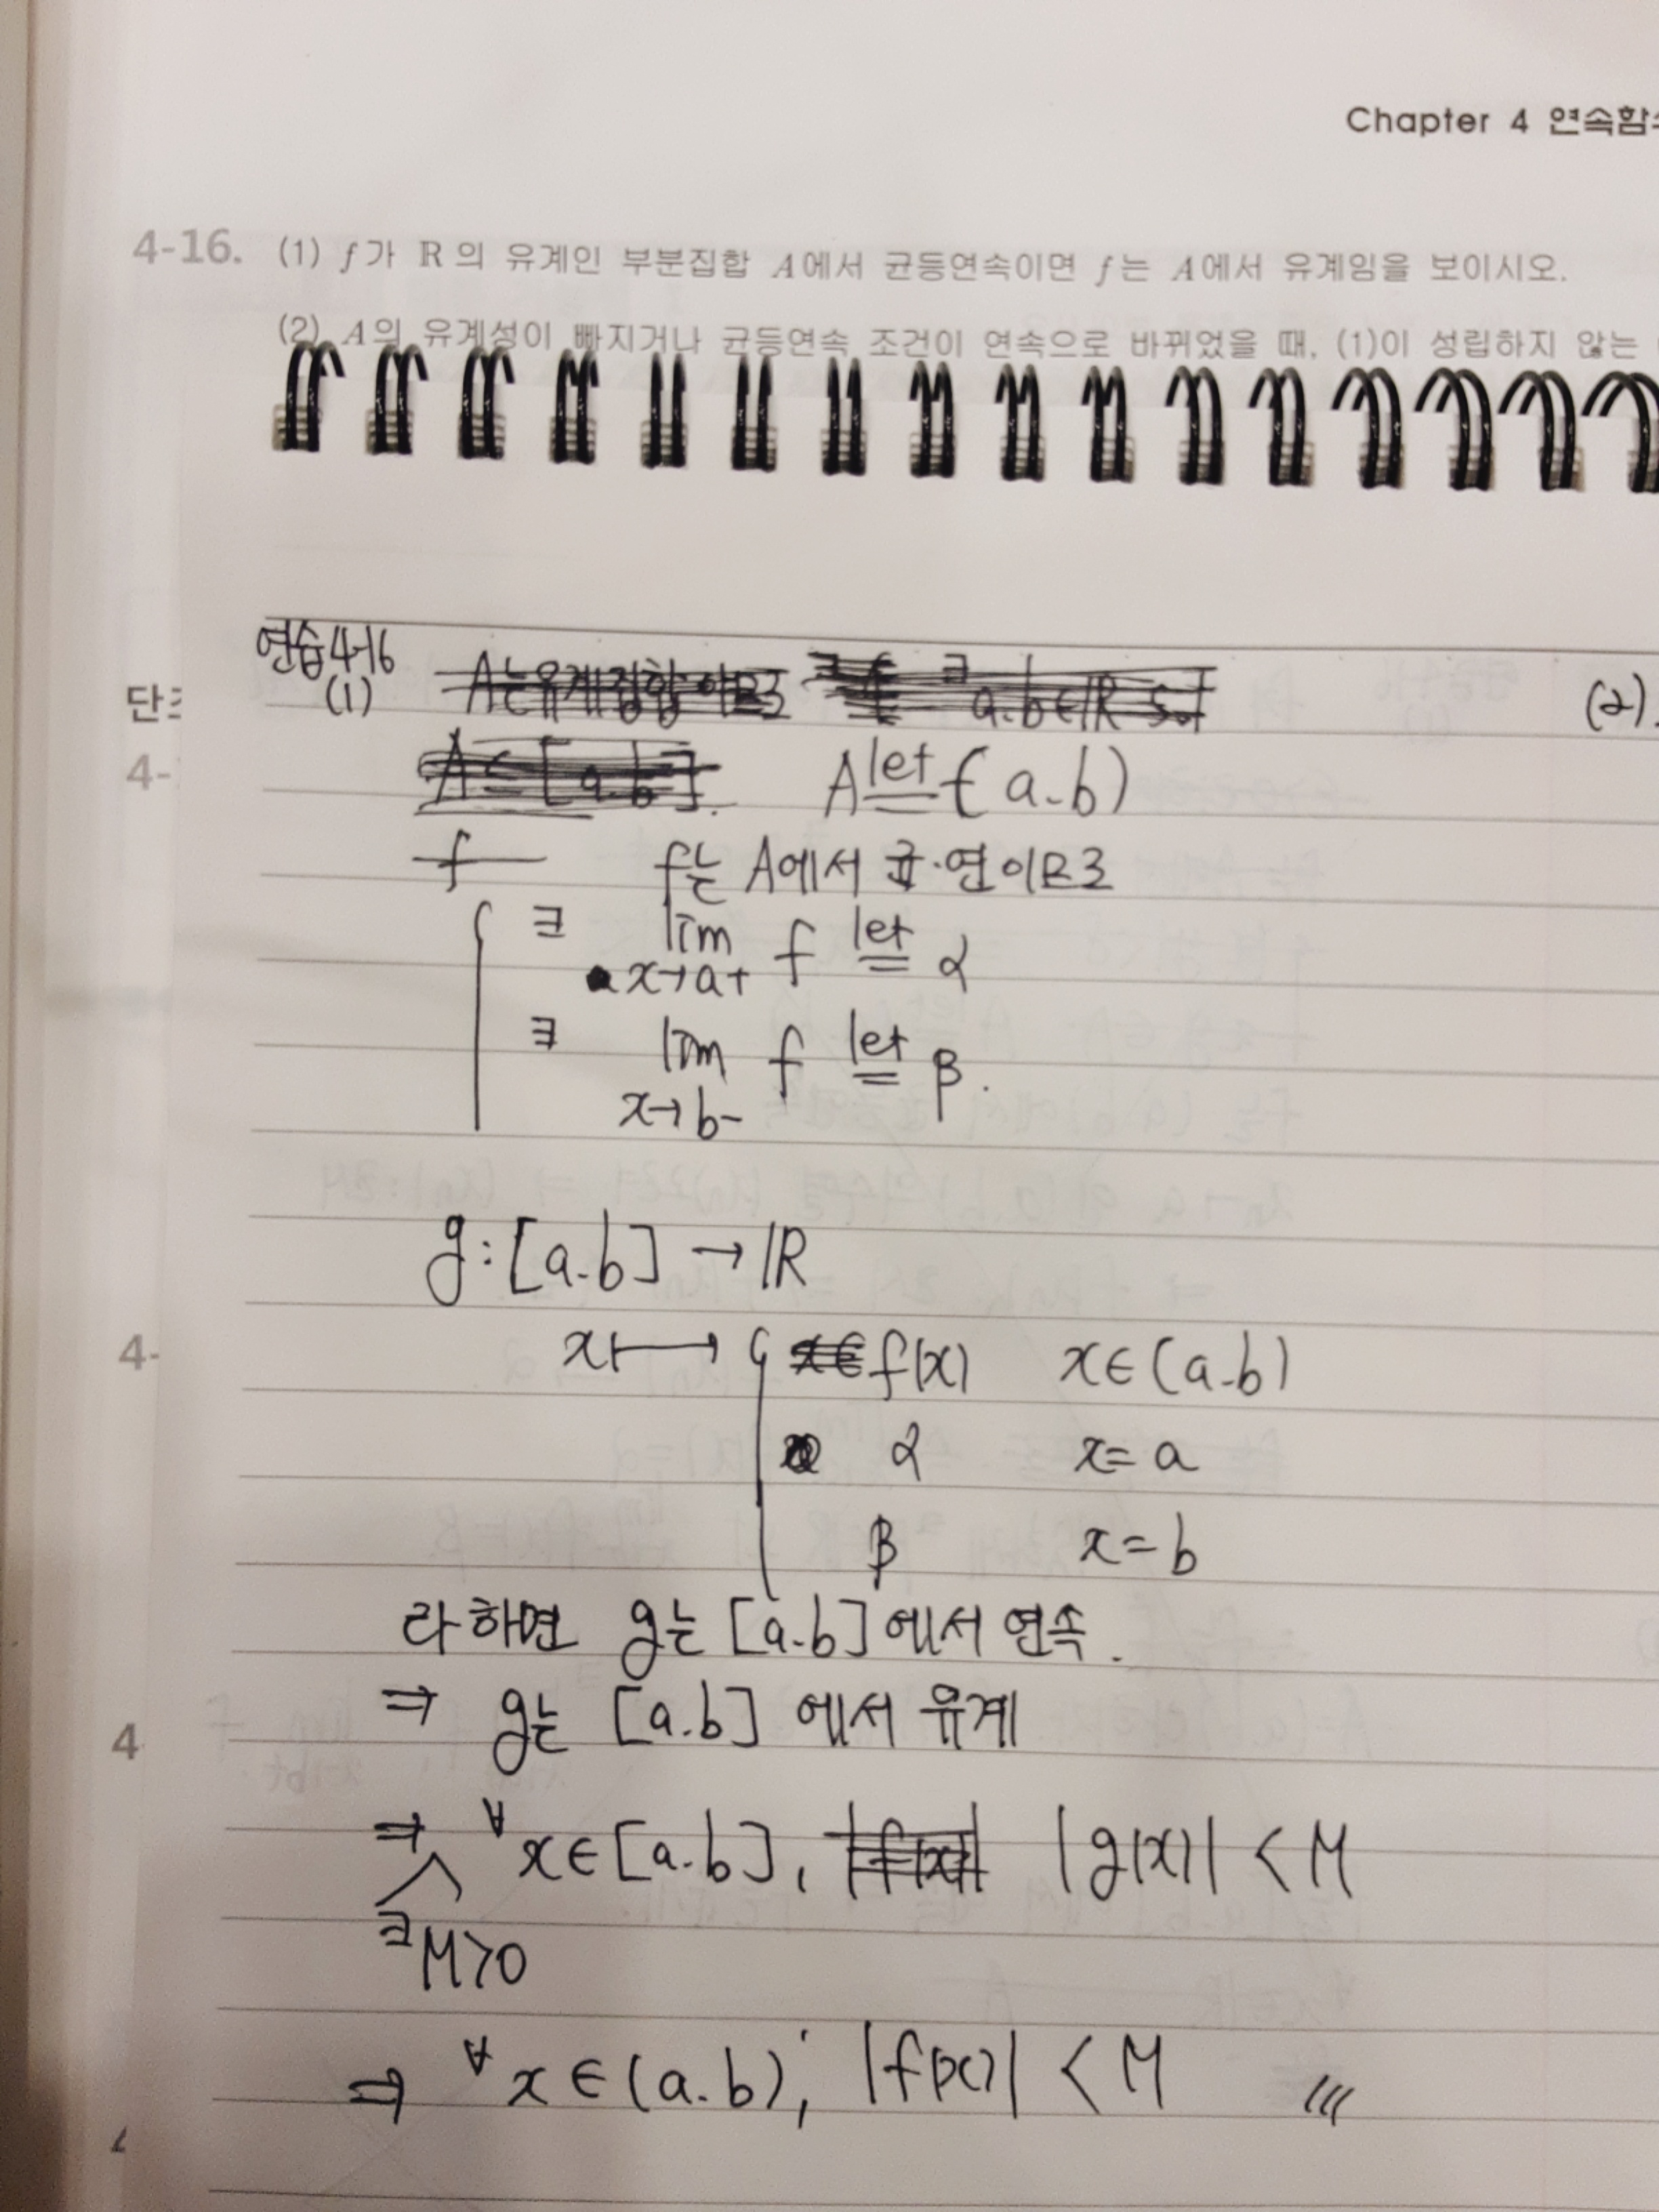 Chapter 4 연속함수
4-16. (1) f가 ℝ의 유계인 부분집합 A에서 균등연속이면 f는 A에서 유계임을 보이시오.
(2) A의 유계성이 빠지거나 균등연속 조건이 연속으로 바뀌었을 때, (1)이 성립하지 않는
연습4-16
(1) A는 유계집합이므로 ∃ a.b∈ℝ s.t
(2).
단조
A⊆[a.b]. A let= (a.b)
4-
f f는 A에서 균.연이므로
∃ lim f let= α
x→a+
∃ lim f let= β.
x→b-
g:[a.b]→ℝ
4-
x↦ { f(x) x∈(a.b)
α x=a
β x=b
라하면 g는 [a.b]에서 연속.
⇒ g는 [a.b]에서 유계
4
⇒ ∀x∈[a.b], |f(x)| |g(x)| < M
∃M>0
⇒ ∀x∈(a.b), |f(x)| < M ///